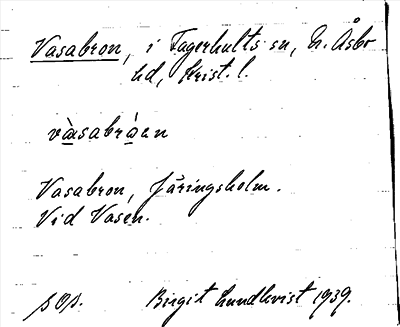 Vasabron, i Fagerhults sn, N. Åsbo
hd, Krist. l.
vàsabråen
Vasabron, Järingsholm.
Vid Vasen.
sOp. Birgit Lundkvist 1939.